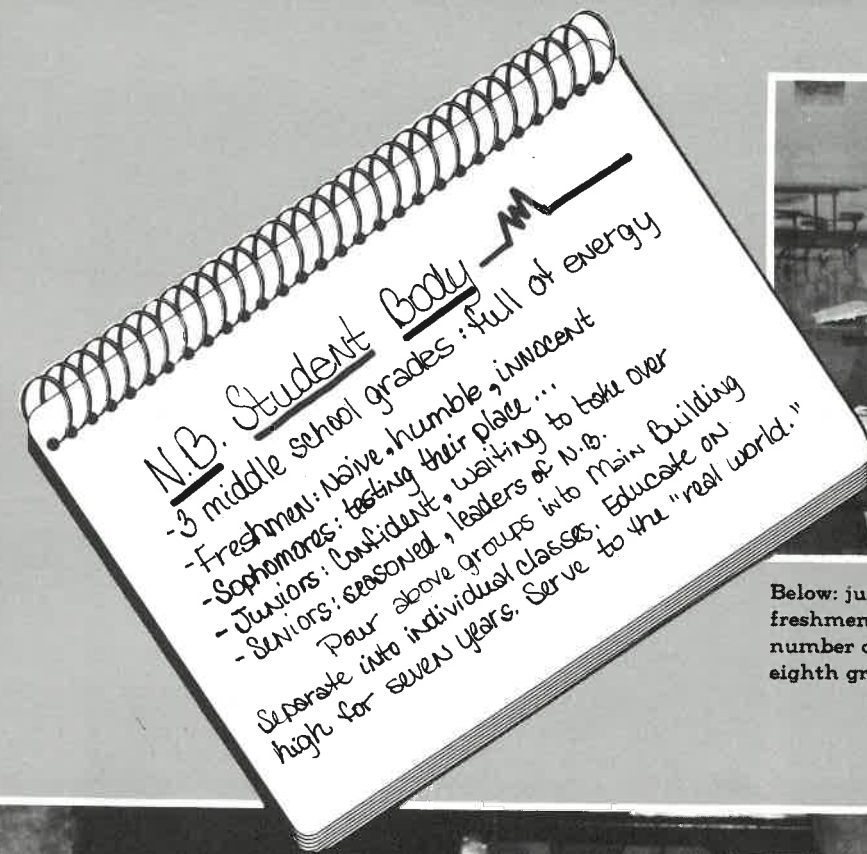 N.B. Student Body
-3 middle school grades: full of energy
-Freshmen: Naive, humble, innocent
-Sophomores: testing their place...
-Juniors: Confident, waiting to take over
-Seniors: seasoned, leaders of N.B.
Pour above groups into Main Building
Separate into individual classes. Educate on
high for seven years. Serve to the "real world."
Below: ju
freshmen
number o
eighth gr